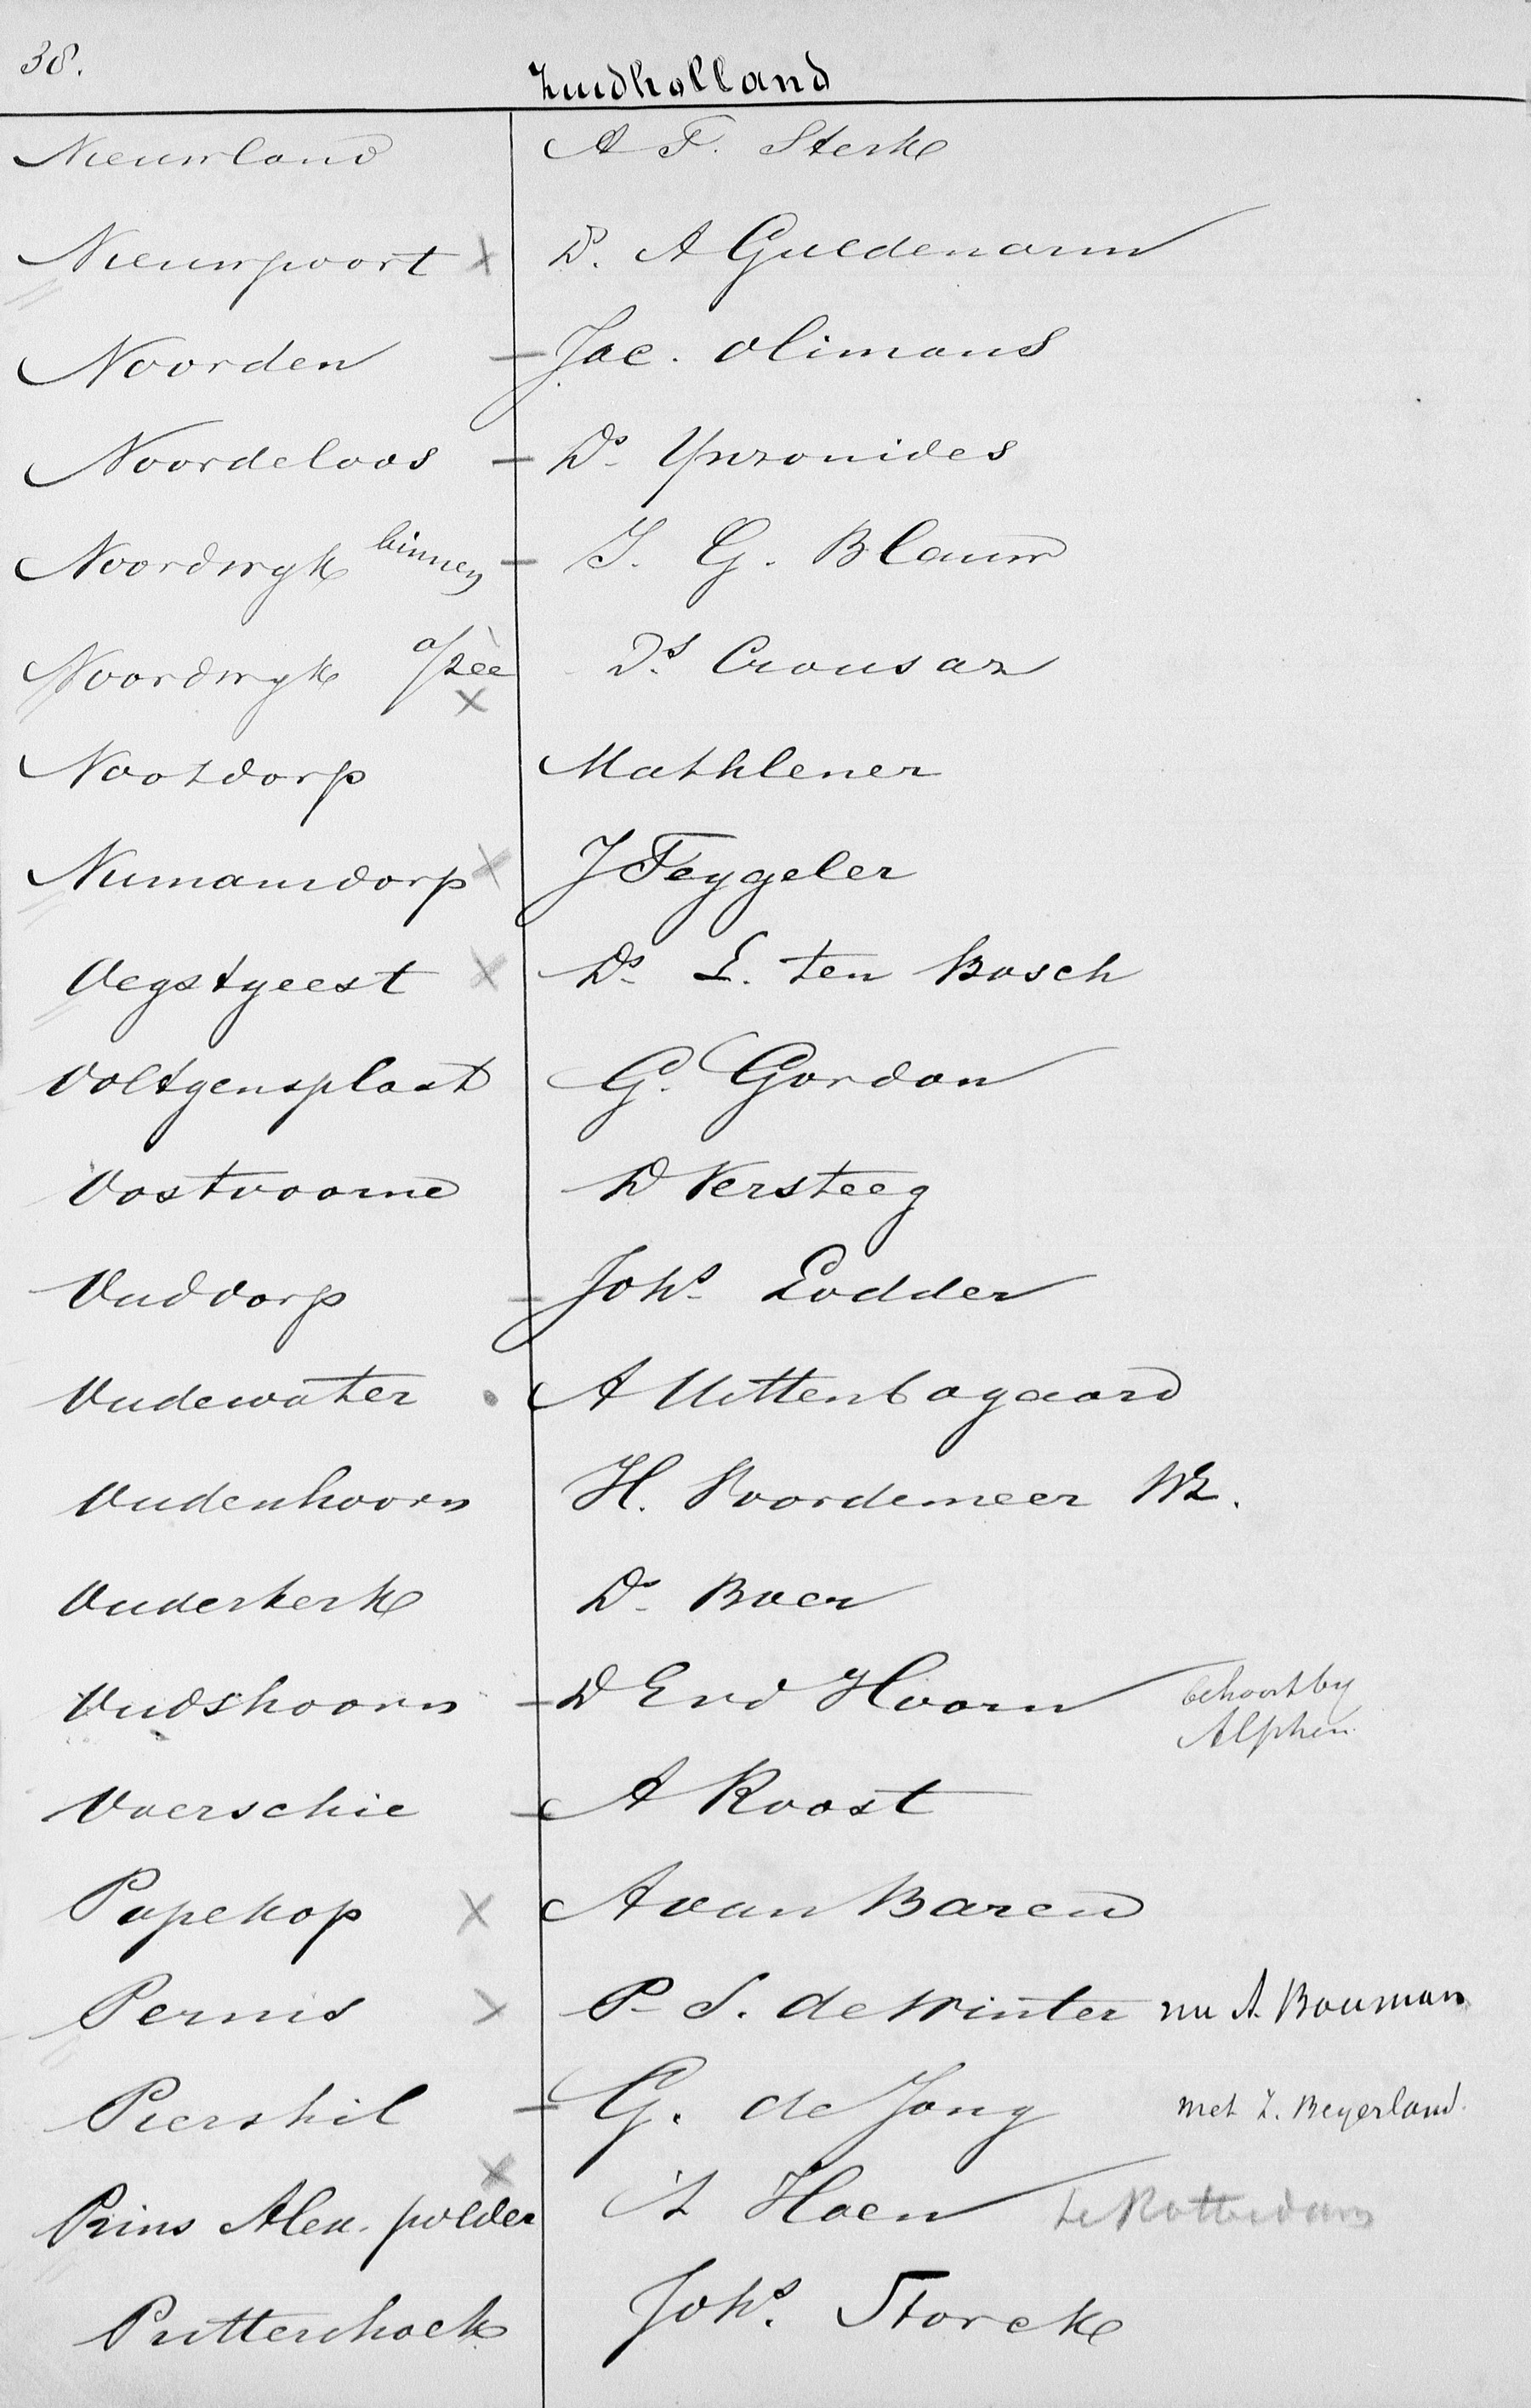 38.
Zuidholland
Nieuwland A F. Sterk
Nieuwpoort x Ds. A Guldenarm
Noorden - Jac. Olimans
Noordeloos - Ds. Ypzonides
Noordwyk binnen - J. G. Blauw
Noordwyk a/zee x Ds. Crousaz
Nootdorp Mathlener
Numansdorp x J Feygeler
Oegstgeest x Ds. L. ten Bosch
Ooltgensplaat G. Gordon
Oostvoorne D Versteeg
Ouddorp - Johs. Lodder
Oudewater . A Uittenbogaard
Oudenhoorn H. Noordemeer Wz.
Ouderkerk Ds. Boer
Oudshoorn - D End Hoorn behoort by
Alphen
Overschie - A Roost
Papekop x A van Baren
Pernis x P S. de Winter nu A. Bouman
Piershil - G. de Jong met Z. Beyerland.
Prins Alex. polder x 't Hoen te Rotterdam
Puttershoek Johs. Storck